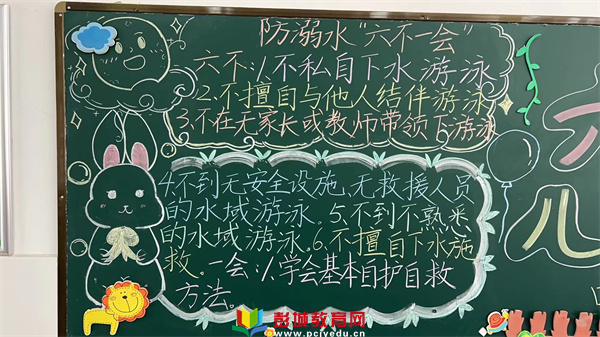 防溺水"六不一会"
六不:1.不私自下水游泳
2.不擅自与他人结伴游泳
3.不在无家长或教师带领下游泳
4.不到无安全设施、无救援人员
的水域游泳。5.不到不熟悉
的水域游泳.6.不擅自下水施
救。一会:1.学会基本自护自救
方法。
彭城教育网
www.pcjyedu.cn